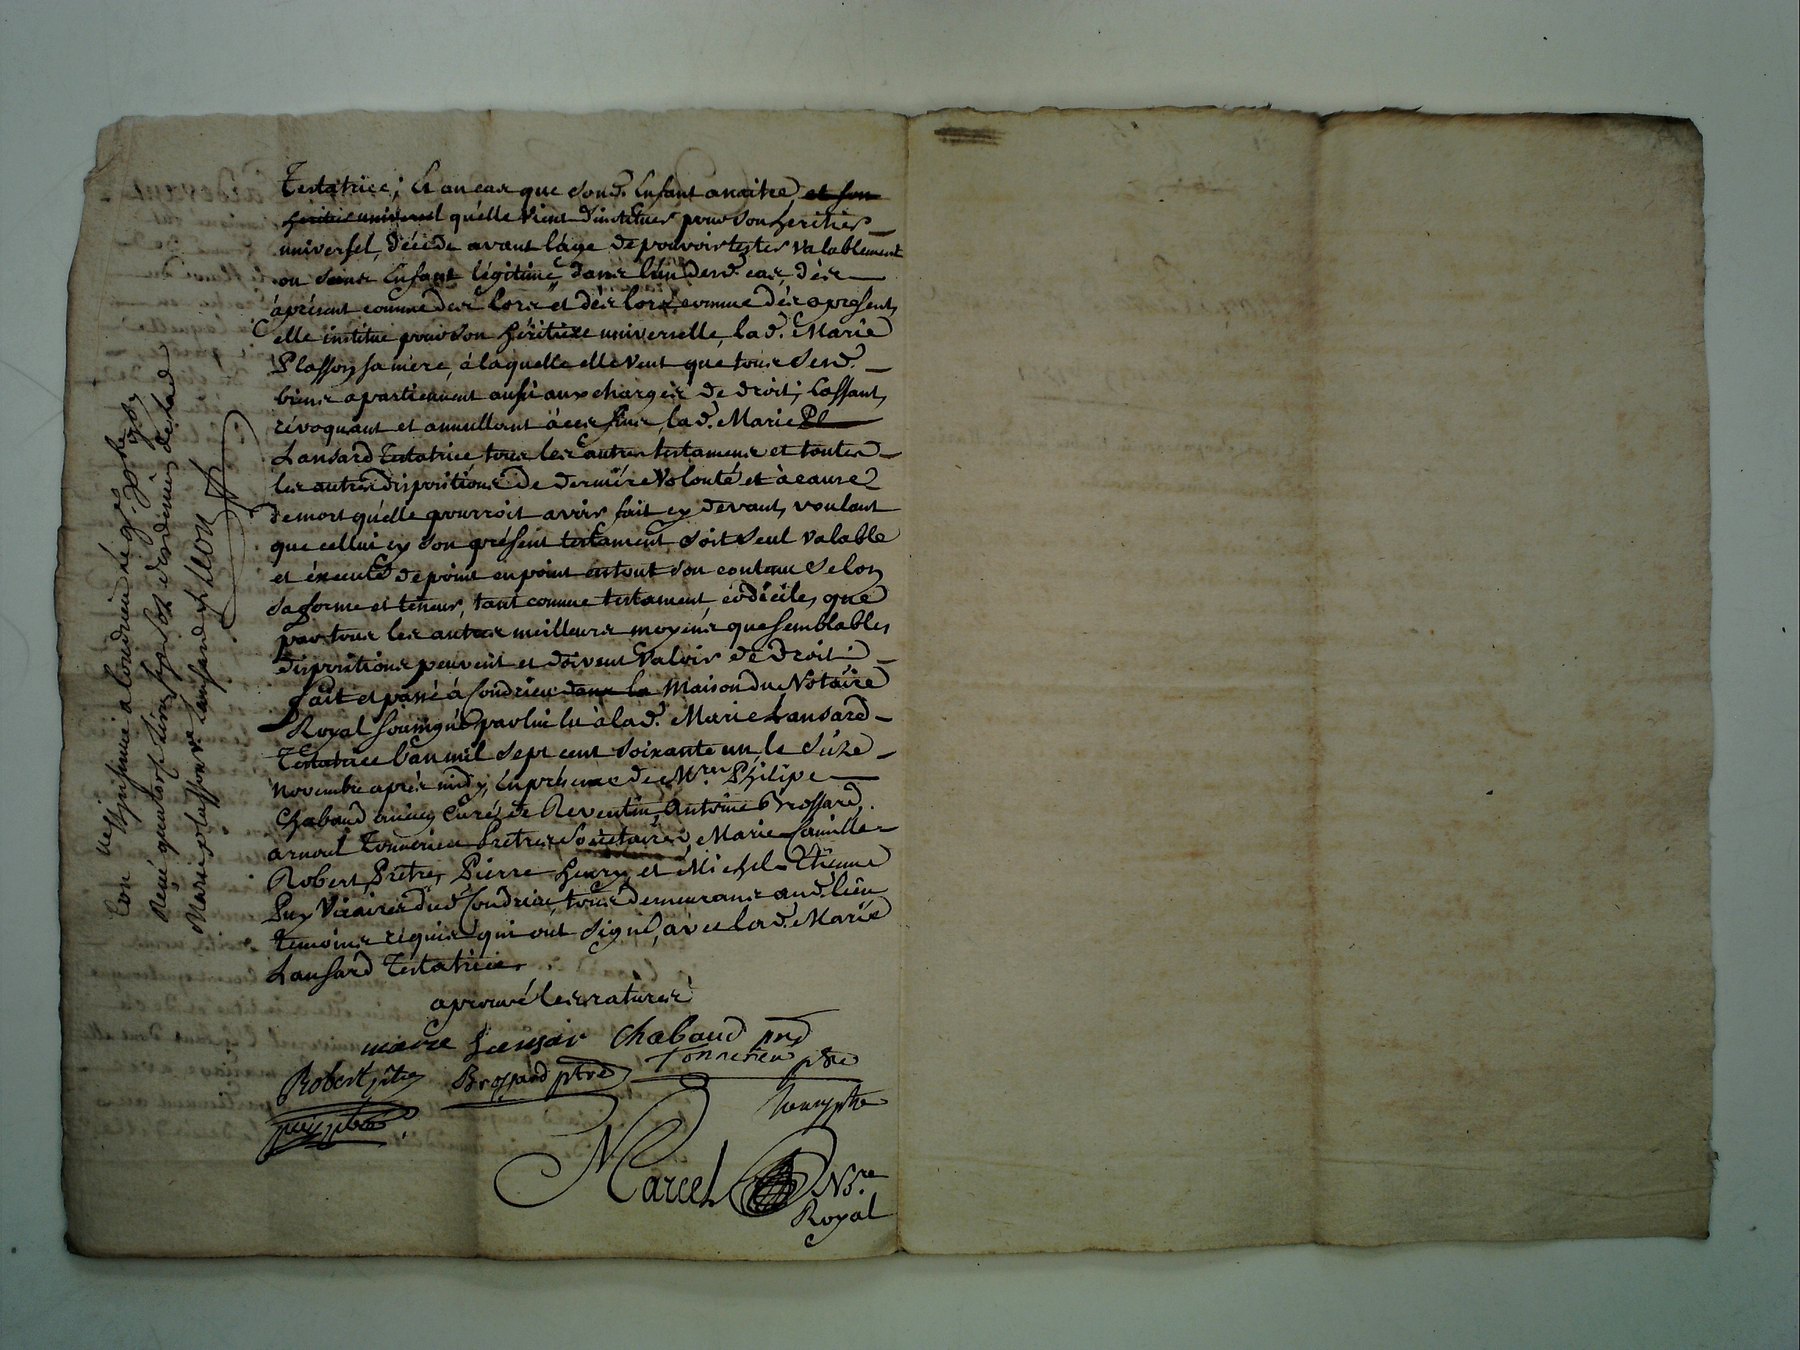 Testatrice; Et en cas que sond. Enfant a naitre, et son
heritier universel qu'elle vient d'instituer pour son heritier
universel, décéde avant l'age de pouvoir tester valablement
ou sans Enfant légitime, dans l'un desd. cas, dès
àprésent comme dès lors et dès lors comme dès apresent,
elle institue pour son héritiere universelle, lad. Marie
Plasson sa mère, à laquelle elle veut que tous sesd.
biens apartiennent aussi aux charges de droit; Cassant,
révoquant et annullant à ces fins, lad. Marie Pl
Lansard Testatrice tous les autres testamens et toutes
les autres dispositions de derniére volonté et à cause
de mort qu'elle pourroit avoir fait cy devant, voulant
que cellui cy son présent testament soit seul valable
et éxecuté de point en point en tout son contenu selon
sa forme et teneur, tant comme testament, codicile, que
par tous les autres meilleurs moyens que semblables
dispositions peuvent et doivent valoir de droit.
fait et passé à Condrieu dans la Maison du Notaire
Royal soussigné par lui lu à lad. Marie Lansard
Testatrice l'an mil sept cent soixante un le seize
Novembre après midy, En présence de Mres Philipe
Chabaud ancien Curé de Reventin, Antoine Brossard,
arnoul Tonnerieu Prêtres Sociétaires, Marie Camille
Robert Prêtre, Pierre henry et Michel Etienne
Puy Vicaires dud. Condrieu, tous demeurans aud. lieu
temoins requis qui ont signé, avec lad. Marie
Lansard Testatrice.
aprouvé les ratures
marie Lansar Chabaud
Tonnerieu ptre
Robert ptre Brossard ptre
henry ptre
puy ptre
Marcel Nre
Royal
Con
Reçu quatorse livres
Marie plasson ve Lansard